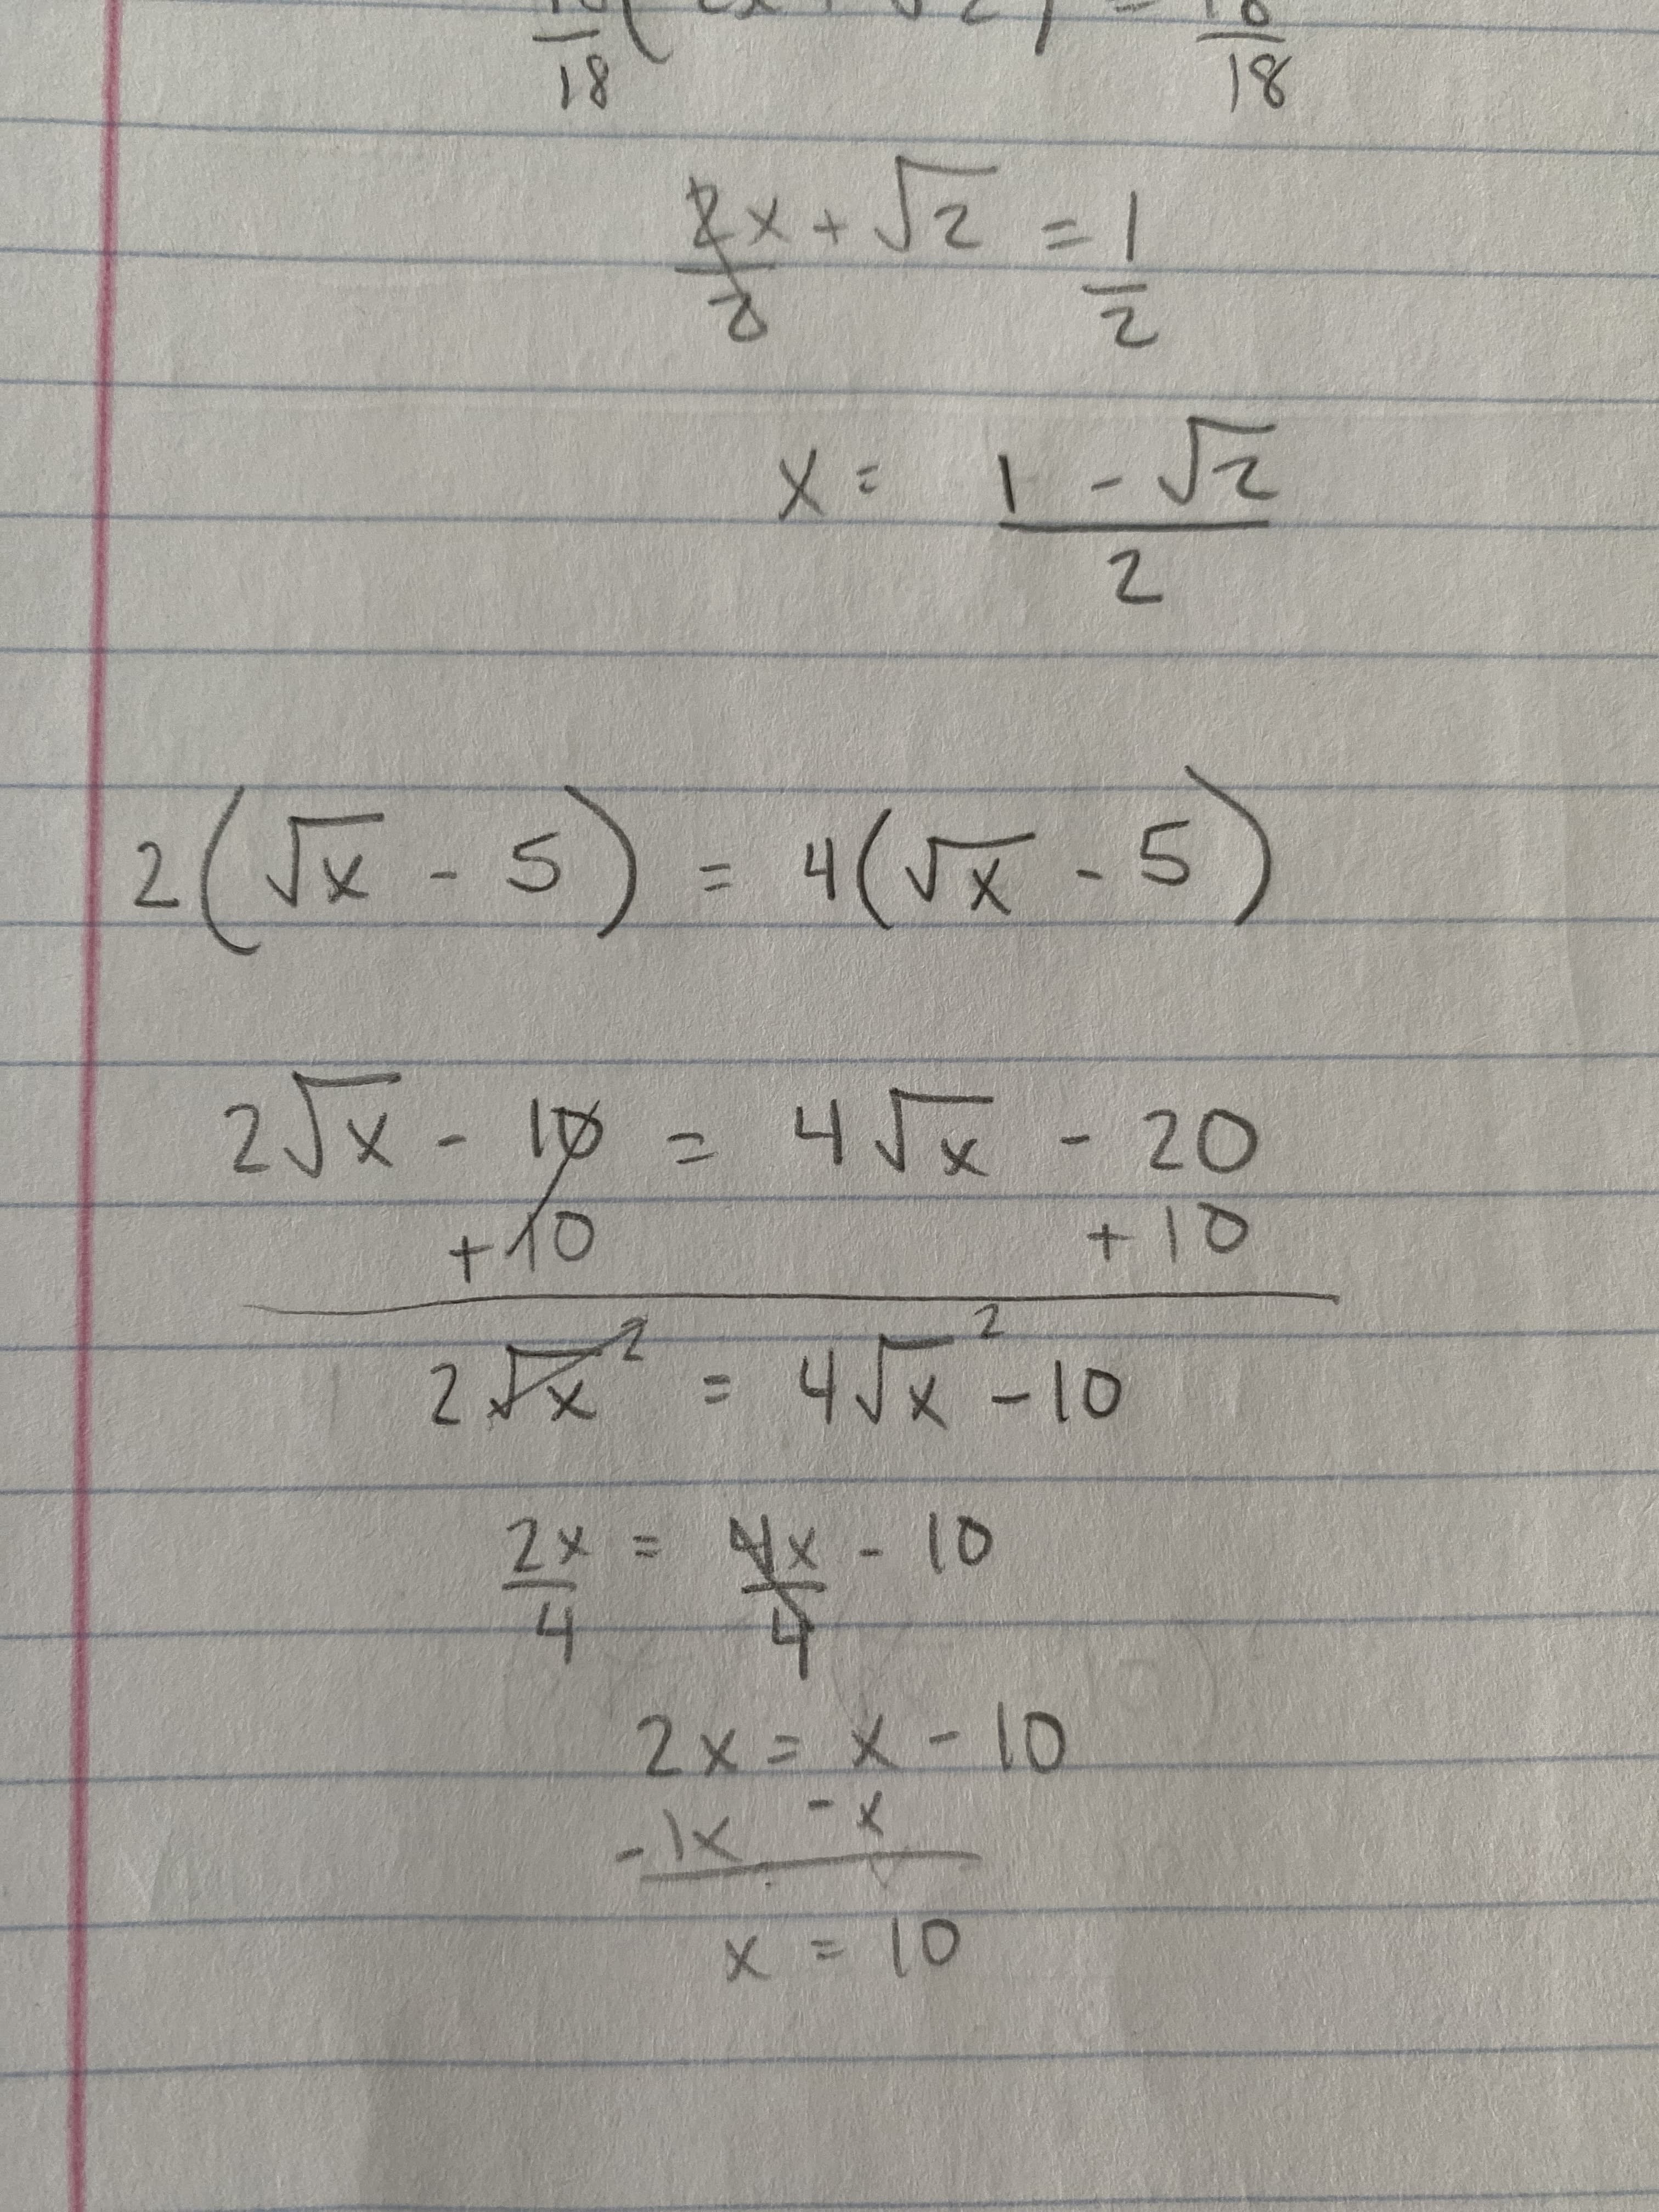 18(2x + √2) = 18
18 18
2x + √2 = 1
2 2
x = 1 - √2
2
2(√x - 5) = 4(√x - 5)
2√x - 10 = 4√x - 20
+10 +10
2√x² = 4√x² - 10
2x = 4x - 10
4 4
2x = x - 10
-1x -x
x = 10